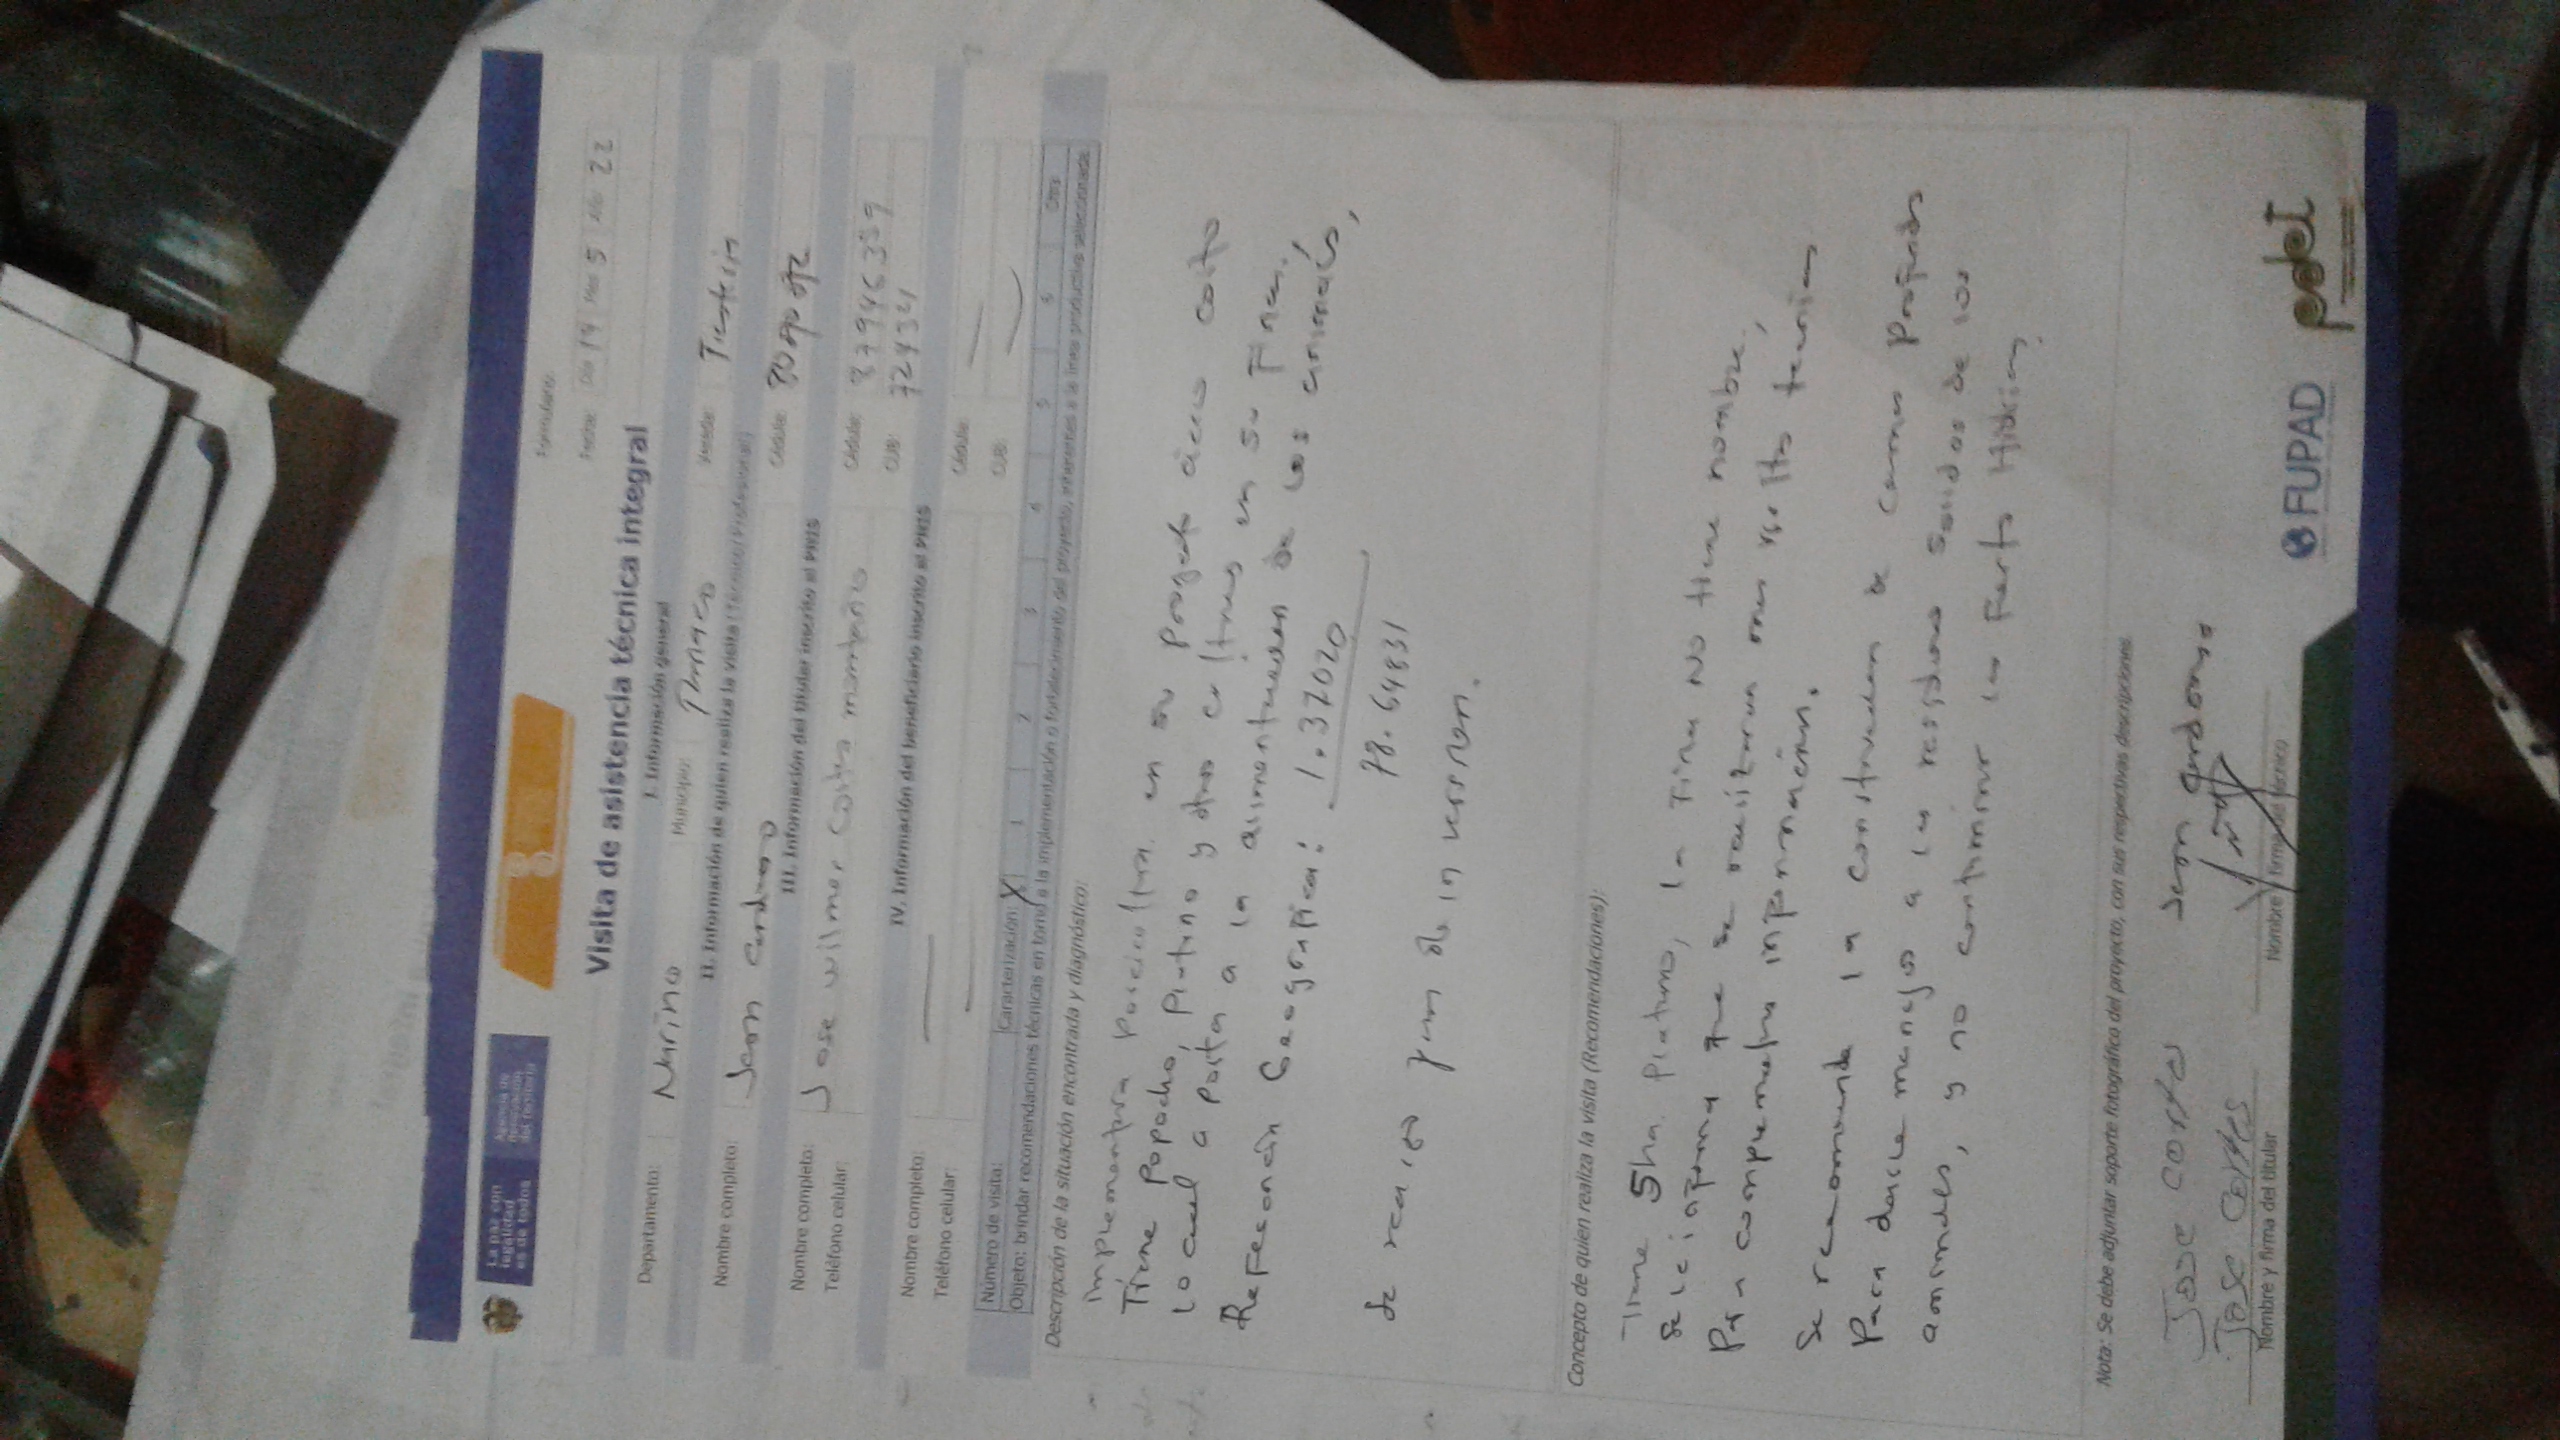 La paz con
legalidad
es de todos
Agencia de
Renovación
del Territorio
Formulario:
Visita de asistencia técnica integral
Fecha: Día 19 Mes 5 Año 22
I. Información general
Departamento: Nariño Municipio: Tumaco Vereda:
II. Información de quien realiza la visita (Técnico/Profesional)
Nombre completo: Jeron Cardona Cédula:
III. Información del titular inscrito al PNIS
Nombre completo: Jose wilmer Cortes montaño Cédula: 87946389
Teléfono celular: CUB: 72434
IV. Información del beneficiario inscrito al PNIS
Nombre completo: Cédula:
Teléfono celular: CUB:
Número de visita: Caracterización: X 1 2 3 4 5 6 Otra
Objeto: brindar recomendaciones técnicas en torno a la implementación o fortalecimiento del proyecto, inherentes a la línea productiva seleccionada.
Descripción de la situación encontrada y diagnóstico:
implementara en su proyecto
Tiene popocho, platano y otros cultivos en su Finca.
lo cual aporta a la alimentación de los animales,
Referencia Geografica: 1.37020
78.64831
Se reviso plan de inversion.
Concepto de quien realiza la visita (Recomendaciones):
Tiene 5ha. Platano, la Finca No tiene nombre,
Se le informa que se realizaran mas visitas tecnicas
Para complementar información.
Se recomienda la construccion de camas profundas
Para darle manejo a los residuos solidos de los
animales, y no contaminar las Fuentes Hidricas.
Nota: Se debe adjuntar soporte fotográfico del proyecto, con sus respectivas descripciones.
Jose Cortes
Jose Cortes
Nombre y firma del titular
Jeron Cardona
Nombre y firma del técnico
FUPAD
pdet